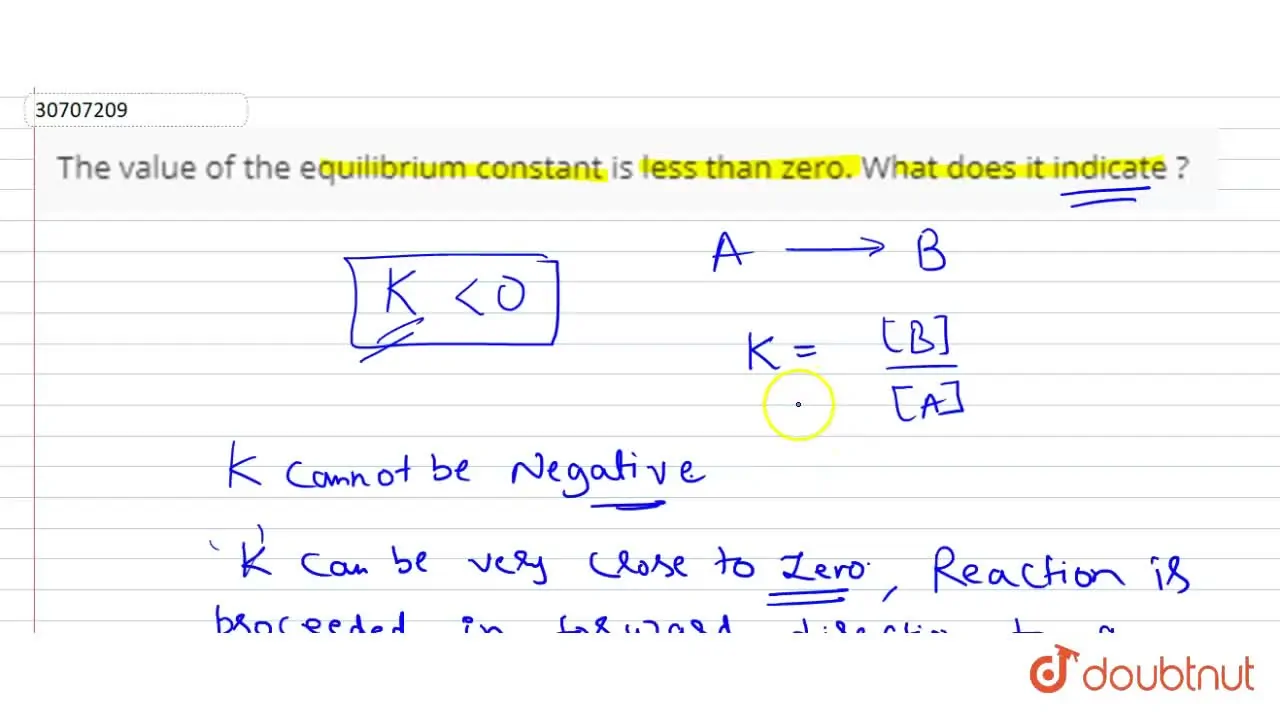 30707209
The value of the equilibrium constant is less than zero. What does it indicate ?
A → B
K < 0
K = [B]
[A]
K cannot be Negative
'K' can be very close to zero. , Reaction is
proceeded in forward direction to a
doubtnut